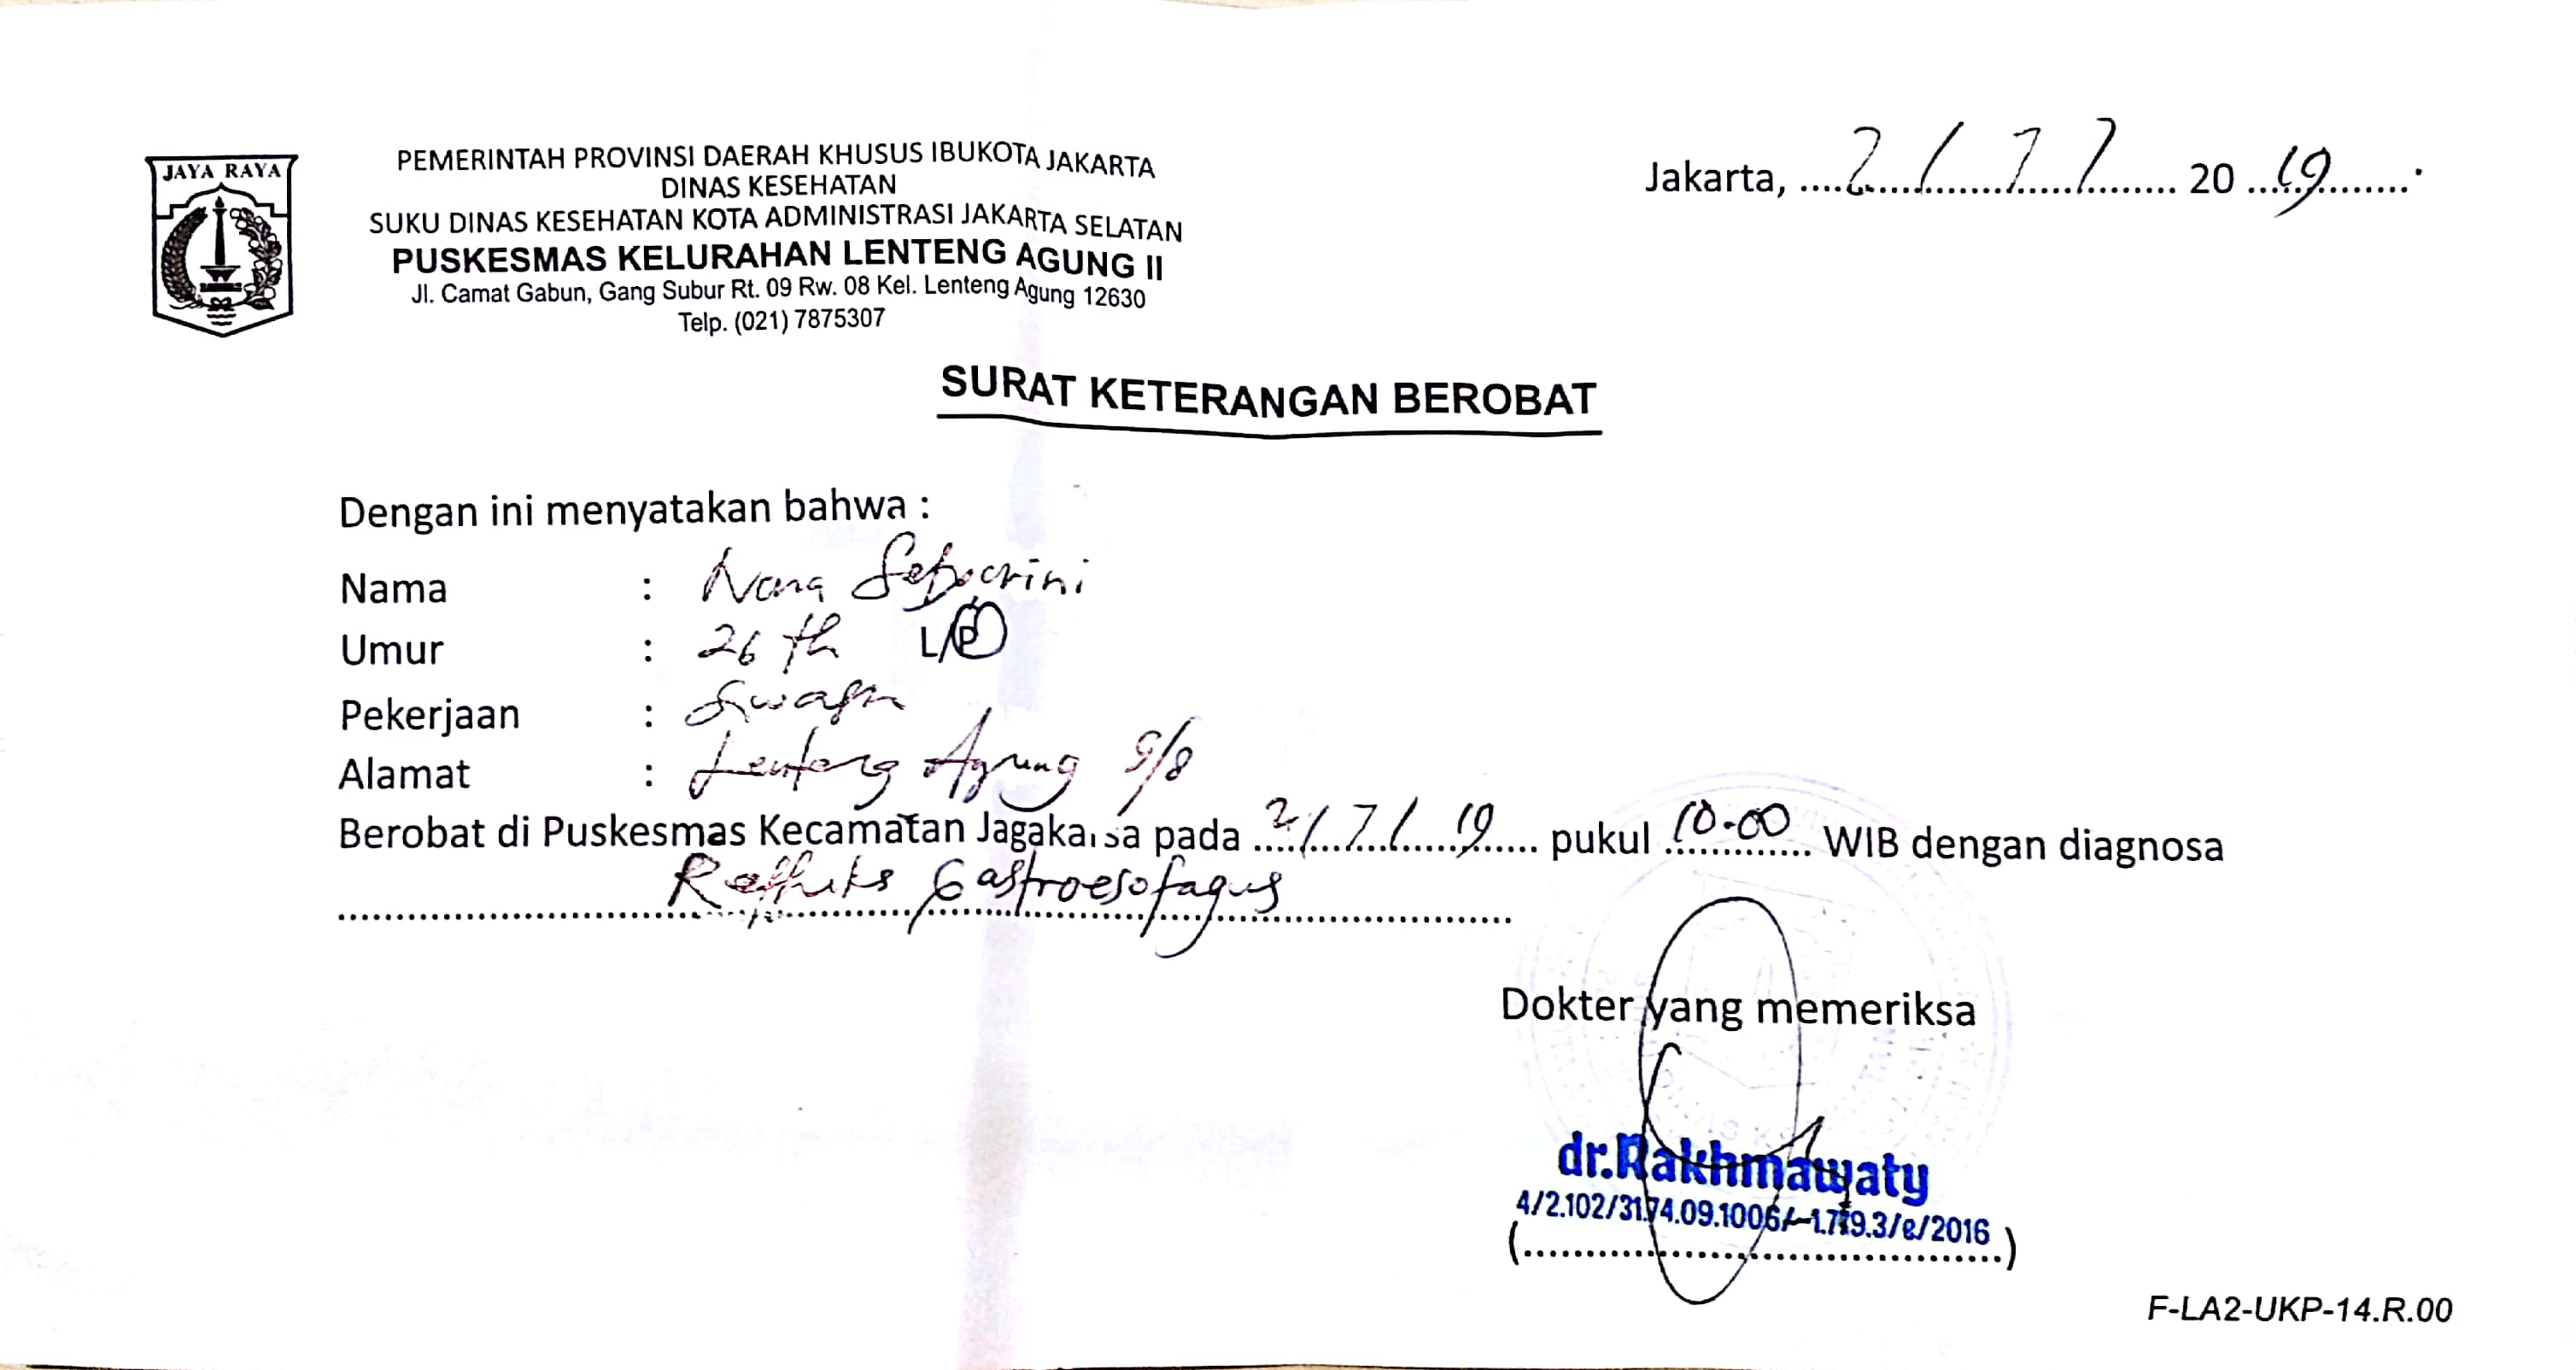 JAYA RAYA
PEMERINTAH PROVINSI DAERAH KHUSUS IBUKOTA JAKARTA
DINAS KESEHATAN
SUKU DINAS KESEHATAN KOTA ADMINISTRASI JAKARTA SELATAN
PUSKESMAS KELURAHAN LENTENG AGUNG II
Jl. Camat Gabun, Gang Subur Rt. 09 Rw. 08 Kel. Lenteng Agung 12630
Telp. (021) 7875307
Jakarta, 2 / 7 / 20 19
SURAT KETERANGAN BEROBAT
Dengan ini menyatakan bahwa :
Nama :
Umur : 26 th L/P
Pekerjaan : Swasta
Alamat : Lenteng Agung 9/8
Berobat di Puskesmas Kecamatan Jagakarsa pada 2/7/19 pukul 10.00 WIB dengan diagnosa
Reffluks Gastroesofagus
Dokter yang memeriksa
dr.Rakhmawaty
(....................................)
F-LA2-UKP-14.R.00